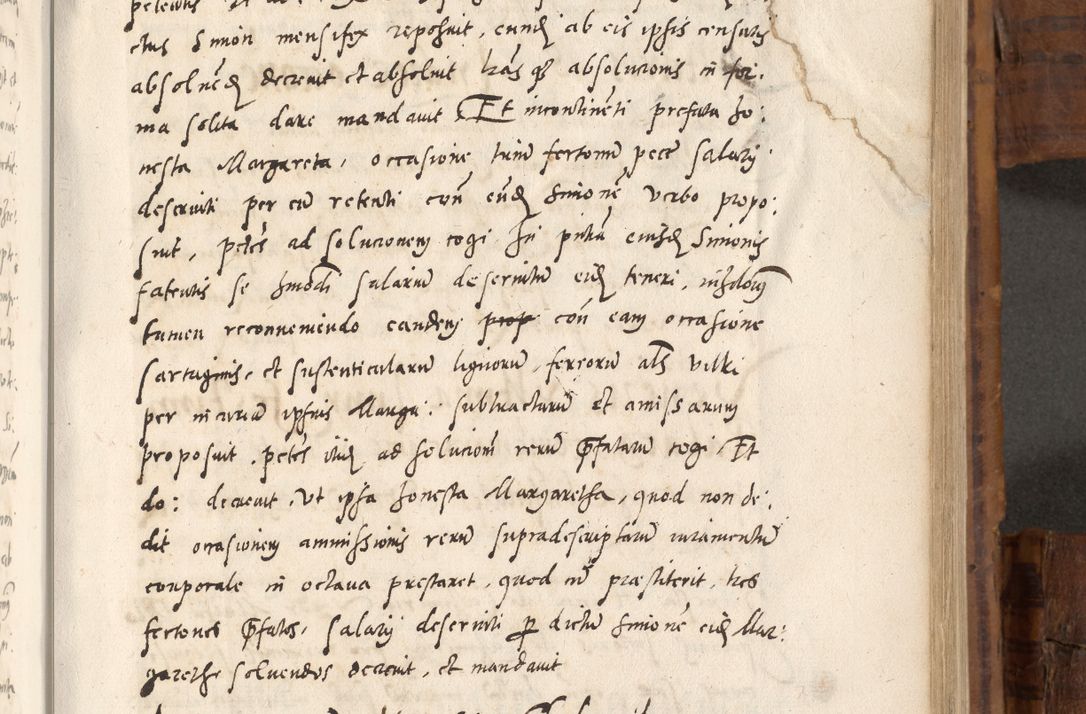 ctus Simon mensifex reposuit, eundẽ ab eis ipsis censuris
absolvẽdẽ decrevit et absolvit lrãs q3 absolucionis in for:
ma solita dare mandavit Et incontinẽti prefata ho:
nesta Margareta, occasione trium fertonũ pecẽ salarij
deserviti per eũ retenti con eũdẽ Simonẽ verbo propo:
suit, petẽs ad solucionem cogi. In pñtia eiusdẽ Simonis
fatentis se hmõdi salariũ deservitũ eidẽ teneri,
tamen reconveniendo eandem prop con eam occasione
sartaginis, et sustenticularũ lignorũ, ferrorũ als vilki
per incuriã ipsius Marga: subtractarũ et amissarum
proposuit, petẽs itidẽ ad solucionẽ rerũ p̃fatarũ cogi Et
do: decrevit, Ut ipsa honesta Margaretha, quod non de:
dit occasionem ammissionis rerũ supradescriptarũ iuramentũ
corporale in octava prestaret, quod cũ præstiterit, tres
fertones p̃fatos, salarij deserviti p dictũ Simonẽ eidẽ Mar:
garethe solvendos decrevit, et mandavit